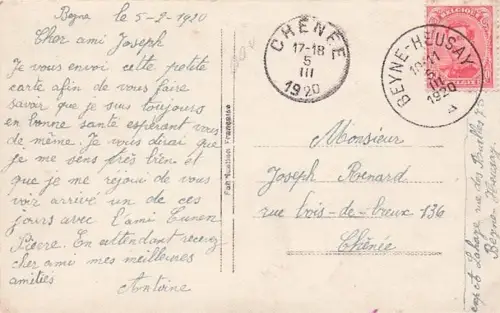 Beyne le 5-2-1920
Cher ami Joseph
Je vous envoi cette petite
carte afin de vous faire
savoir que je suis toujours
en bonne santé esperant vous
de même. Je vous dirai que
je me sens très bien et
que je me réjoui de vous
voir arrivé un de ces
jours avec l'ami
Pierre. En attendant recevez
cher ami mes meilleures
amitiés
Antoine
Fabrication Française
CHÊNÉE
17-18
5
III
1920
BEYNE-HEUSAY
1920
BELGIQUE
Monsieur
Joseph Renard
rue bois-de-breux 136
Chênée
rue des
Beyne Heusay